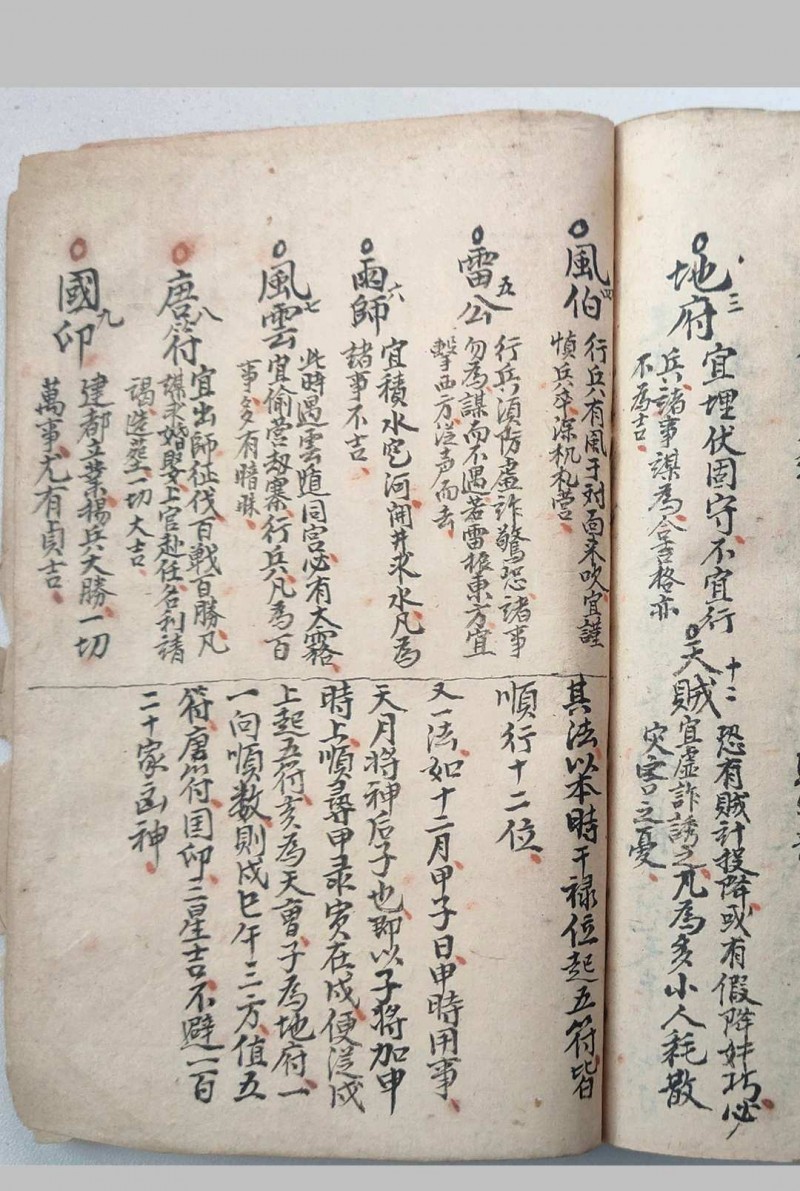 地府 三
宜埋伏固守不宜行
兵諸事謀為合吉格亦
不為吉
天賊 十二
恐有賊計投降或有假降奸巧必
宜虛詐誘之凡為多小人耗散
灾害之憂
風伯 四
行兵有風于对面来吹宜謹
慎兵卒深机札营
雷公 五
行兵須防虛詐驚恐諸事
勿為謀而不遇若雷振東方宜
擊西方从声而去
雨師 六
宜積水穵河開井求水凡為
諸事不吉
風雲 七
此時遇雲遁同宫必有大霧
宜偷营刼寨行兵凡為百
事多有暗昧
唐符 八
宜出師征伐百戦百勝凡
謀求婚娶上官赴任名利請
謁造塟一切大吉
國印 九
建都立業揚兵大勝一切
萬事尤有貞吉
其法以本時干禄位起五符皆
順行十二位
又一法如十二月甲子日申時用事
天月将神后子也即以子将加申
時上順尋甲录寅在戌便从戌
上起五符亥為天曹子為地府一
一向順数則戌巳午三方值五
符唐符国印三星吉不避一百
二十家凶神